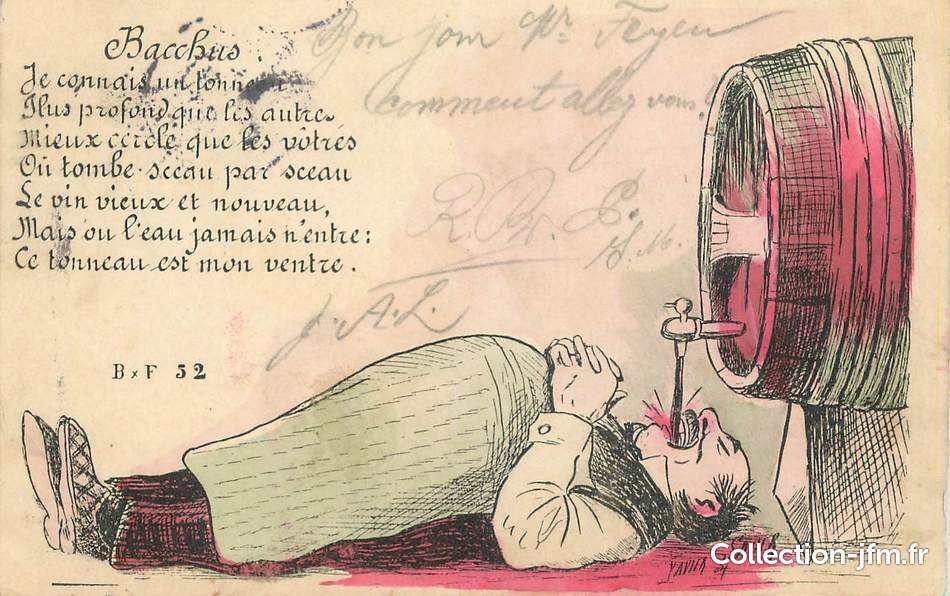 Bacchus.
Je connais un tonneau
Plus profond que les autres
Mieux cerclé que les vôtres
Où tombe sceau par sceau
Le vin vieux et nouveau,
Mais ou l'eau jamais n'entre:
Ce tonneau est mon ventre.
Bon jour Mr Feyen
comment allez vous?
S.M.
J.A.L.
B x F 52
XAVIER 04
Collection-jfm.fr